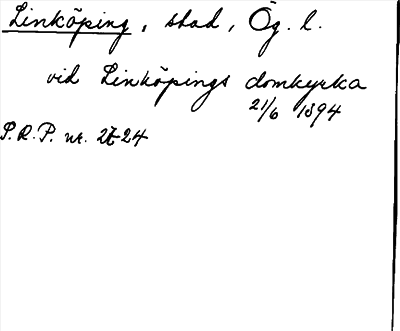 Linköping, stad, Ög. l.
vid Linköpings domkyrka
21/6 1894
P.R.P. nr. 24